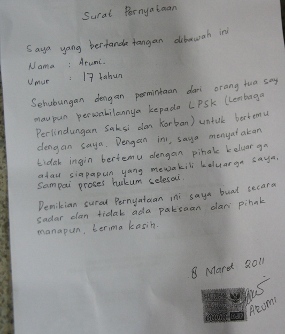 Surat Pernyataan
Saya yang bertanda tangan dibawah ini
Nama : Arumi.
Umur : 17 tahun
Sehubungan dengan permintaan dari orang tua say
maupun perwakilannya kepada LPSK (Lembaga
Perlindungan Saksi dan Korban) untuk bertemu
dengan saya. Dengan ini, saya menyatakan
tidak ingin bertemu dengan pihak keluarga
atau siapapun yang mewakili keluarga saya,
sampai proses hukum selesai.
Demikian surat Pernyataan ini saya buat secara
sadar dan tidak ada paksaan dari pihak
manapun, terima kasih.
8 Maret 2011
ARUMI